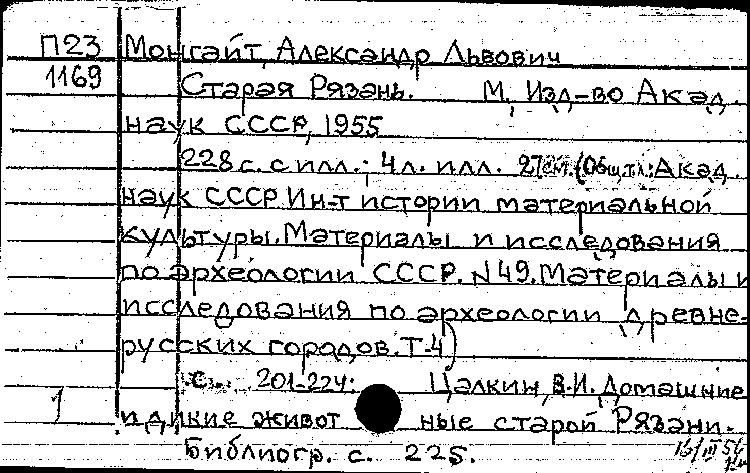 П23 Монгайт, Александр Львович
1169 Старая Рязань. М, Изд-во Акад.
наук СССР, 1955
228 с. с илл.; 4 л. илл. 27см. (Общ.тл.: Акад.
наук СССР Ин-т истории материальной
культуры. Материалы и исследования
по археологии СССР. N 49. Материалы и
исследования по археологии древне-
русских городов. Т-4)
С. 201-224: Цалкин, В.И. Домашние
1 и дикие животные старой Рязани.
Библиогр. с. 225.
16/III 56